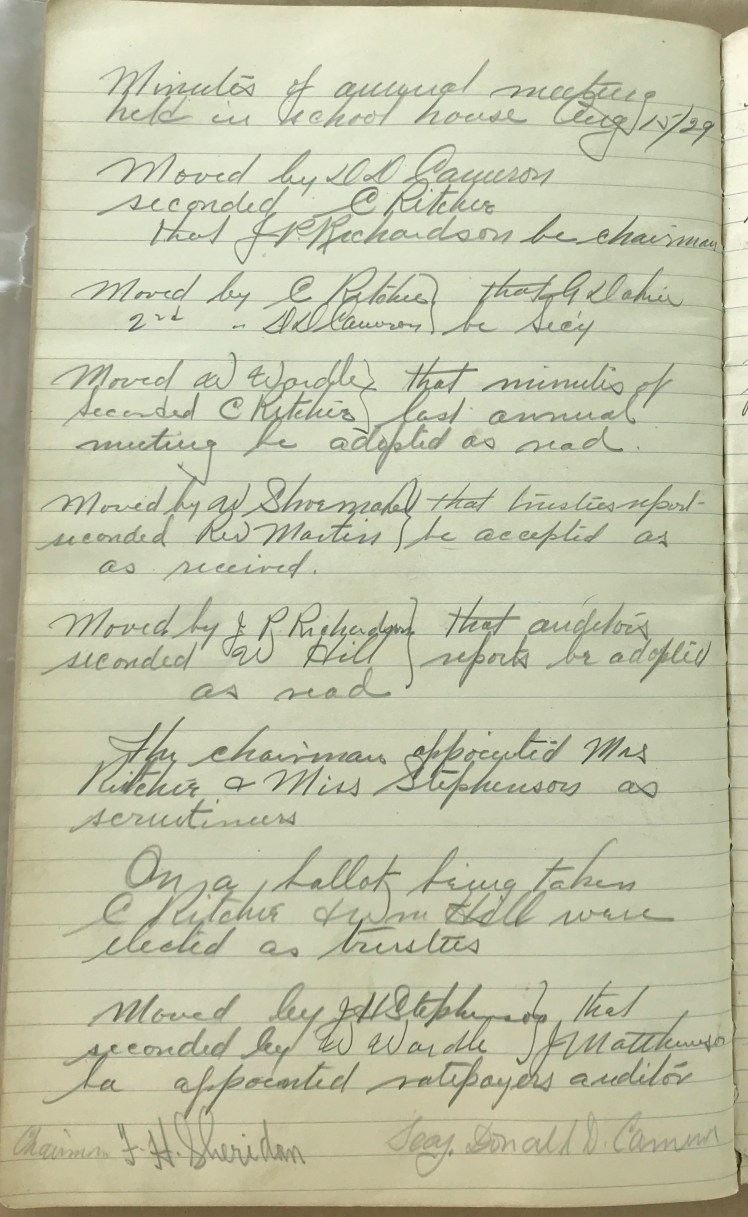 Minutes of annual meeting
held in school house Aug 15/29
Moved by D D Cameron
seconded C Ritchie
that J P. Richardson be chairman
Moved by C Ritchie } that G
2nd " D D Cameron } be Sec'y
Moved W Wardle } that minutes of
Seconded C Ritchie } last annual
meeting be adopted as read.
Moved by W Shoemaker } that trustees report
seconded Rev Martin } be accepted as
as received.
Moved by J P Richardson } that auditors
seconded W Hill } reports be adopted
as read
The chairman appointed Mrs
Ritchie & Miss Stephenson as
scrutineers
On a ballot being taken
C Ritchie & Wm Hill were
elected as trustees
Moved by J H Stephenson } that
seconded by W Wardle } J Matthewson
be appointed ratepayers auditor
Chairman F. H. Sheridan Secy. Donald D. Cameron